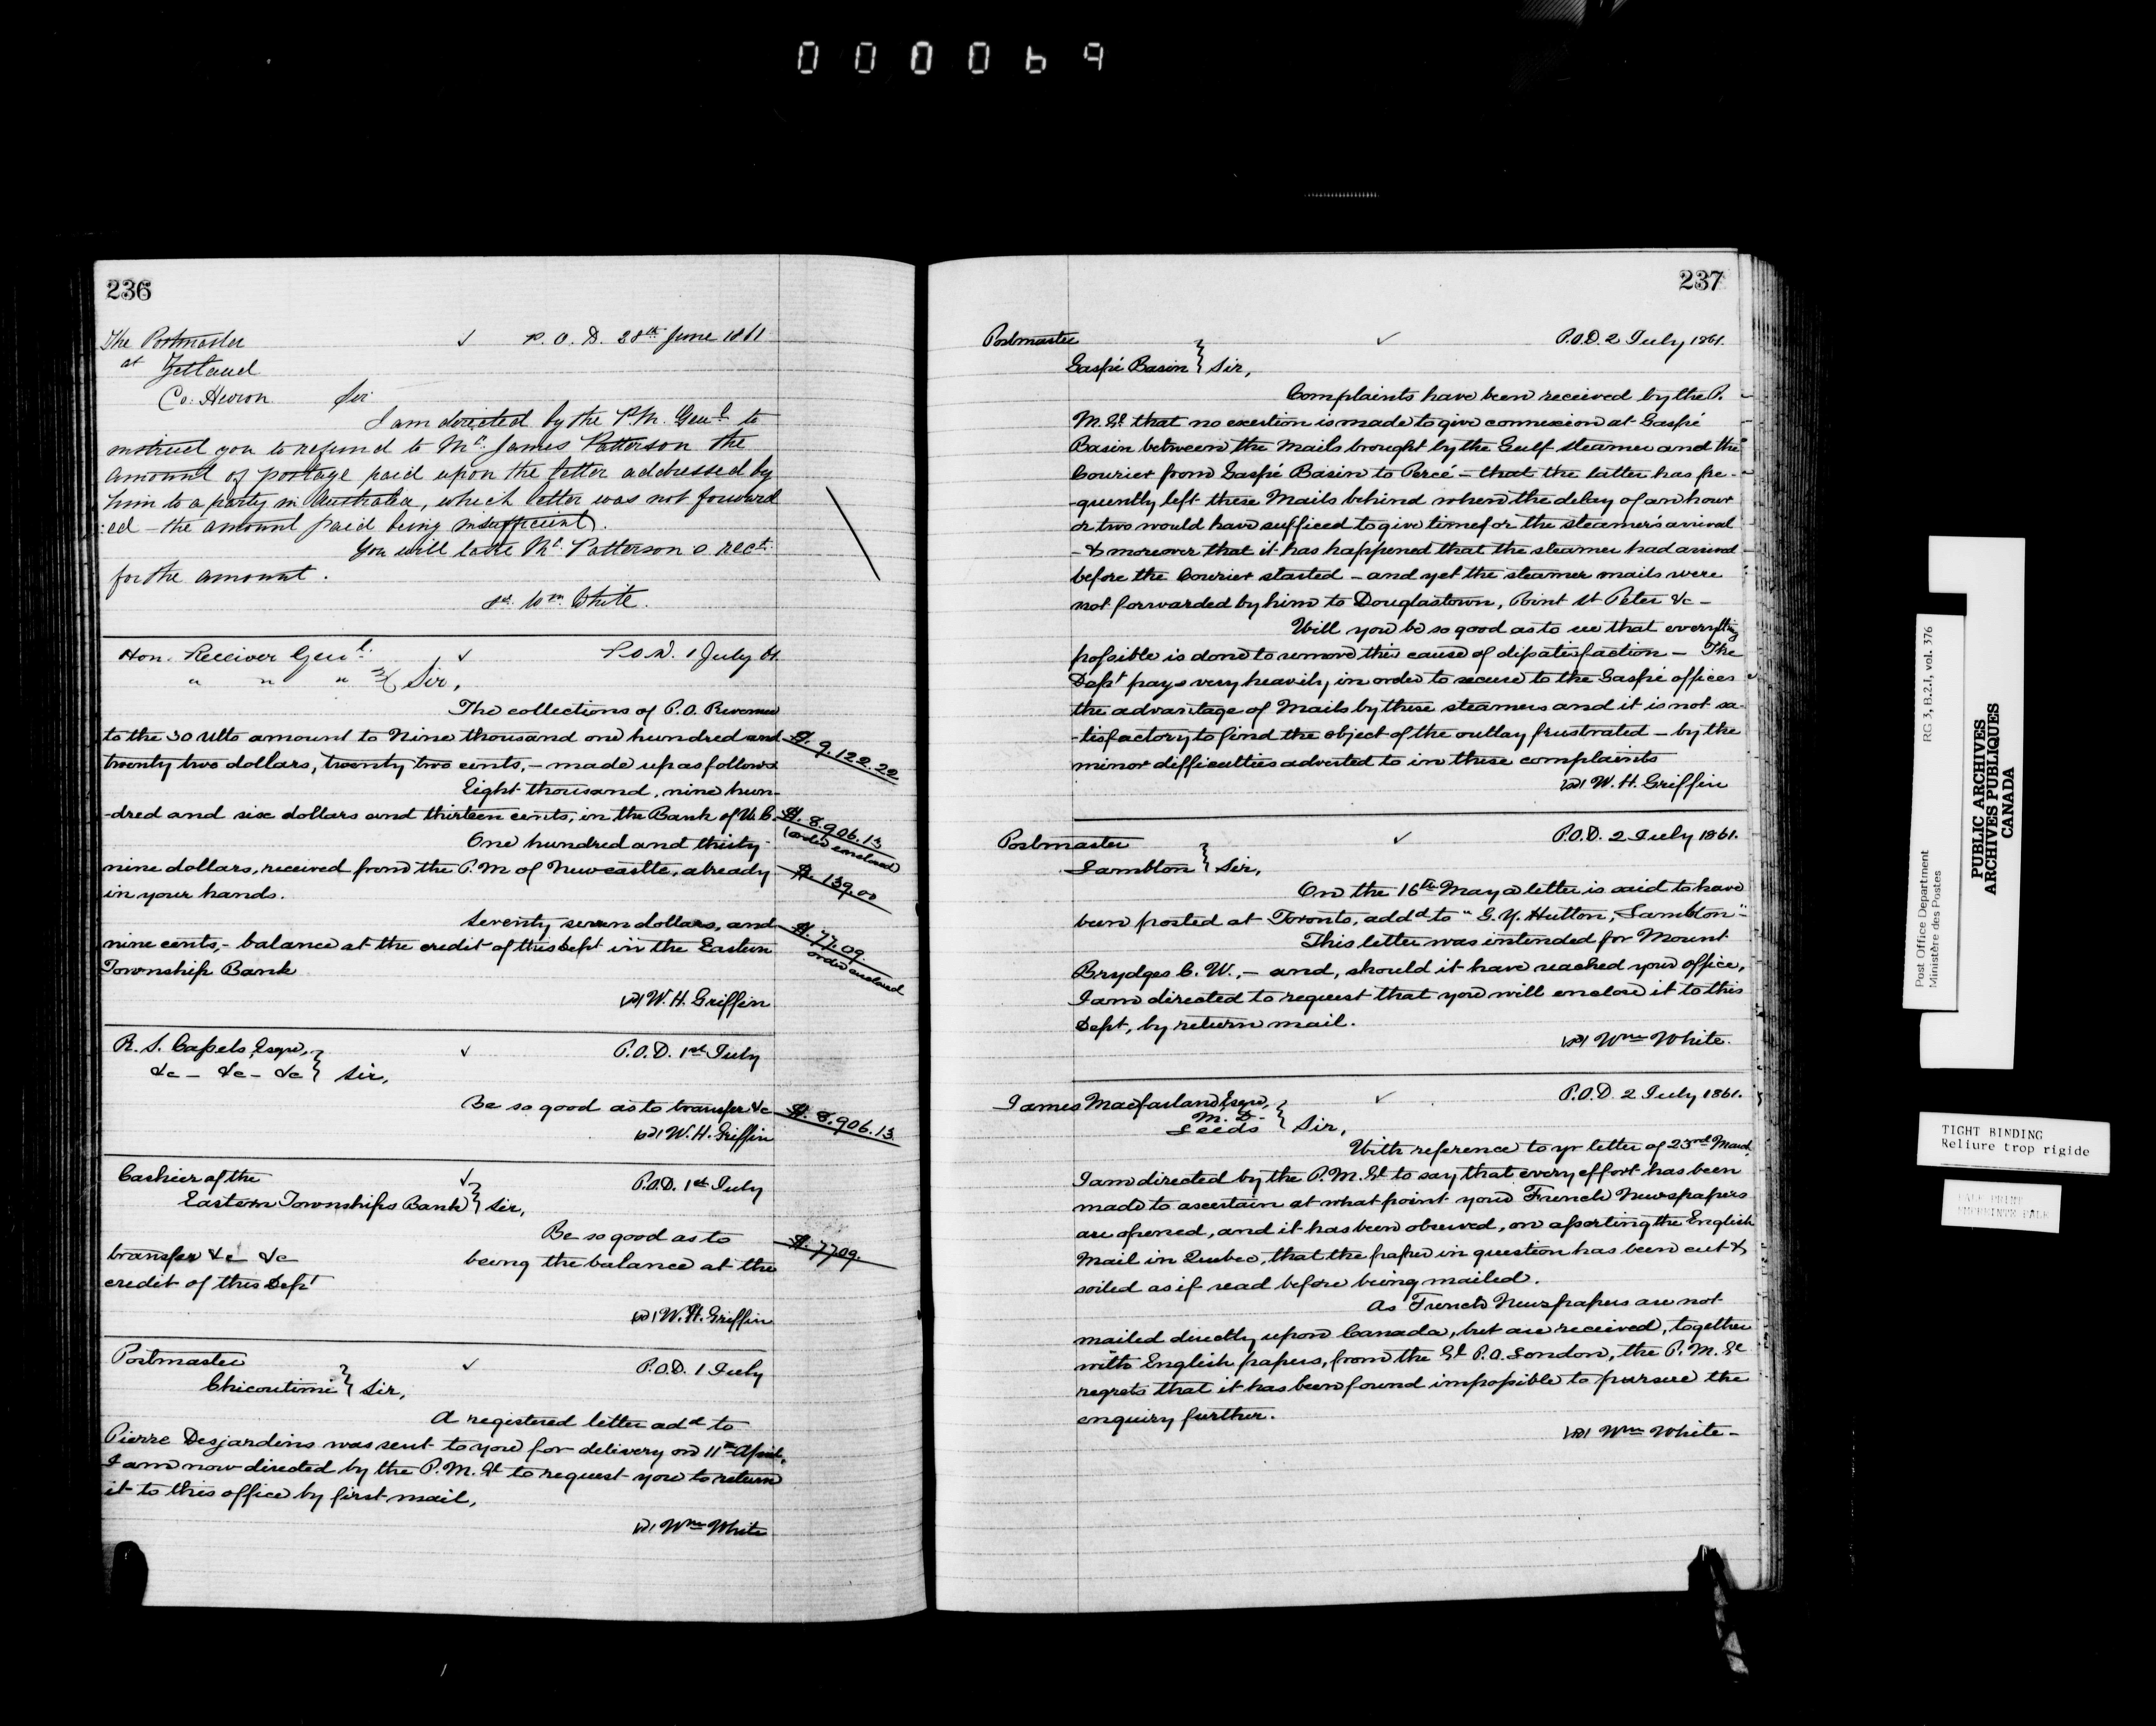 000069
236
The Postmaster ✓ P.O.D. 28th June 1861
at Zetland
Co: Huron Sir
I am directed by the P.M. Genl to
instruct you to refund to Mr. James Patterson the
amount of postage paid upon the letter addressed by
him to a party in Australia, which letter was not forward
:ed - the amount paid being insufficient.
You will take Mr. Patterson's rect.
for the amount.
sd. Wm White.
Hon. Receiver Genl. ✓ P.O.D. 1 July 61.
" " " Sir,
The collections of P.O. Revenue
to the 30 Ulto amount to Nine thousand one hundred and $. 9.122.22
twenty two dollars, twenty two cents, - made up as follows
Eight thousand, nine hun-
-dred and six dollars and thirteen cents, in the Bank of U.C. $. 8.906.13
(order enclosed)
One hundred and thirty-
nine dollars, received from the P.M of Newcastle, already $. 139.00
in your hands.
Seventy seven dollars, and $. 77.09.
order enclosed
nine cents, - balance at the credit of this Dept in the Eastern
Township Bank
(sd) W. H. Griffin
R. S. Cassels, Esqre, ✓ P.O.D. 1st July
&c - &c - &c } Sir,
Be so good as to transfer &c $. 8.906.13.
(sd) W. H. Griffin
Cashier of the ✓ P.O.D. 1st July
Eastern Townships Bank } Sir,
Be so good as to $. 77.09.
transfer &c &c being the balance at the
credit of this Dept
(sd) W. H. Griffin
Postmaster ✓ P.O.D. 1 July
Chicoutimi } Sir,
A registered letter add to
Pierre Desjardins was sent to you for delivery on 11th April,
I am now directed by the P.M.Gl to request you to return
it to this office by first mail,
(sd) Wm White
237
Postmaster ✓ P.O.D. 2 July 1861.
Gaspé Basin } Sir,
Complaints have been received by the P.
M. Gl that no exertion is made to give connexion at Gaspé
Basin between the Mails brought by the Gulf steamer and the
Courier from Gaspé Basin to Percé - that the latter has fre-
-quently left these Mails behind when the delay of an hour
or two would have sufficed to give time for the steamer's arrival
- & moreover that it has happened that the steamer had arrived
before the Courier started - and yet the steamer mails were
not forwarded by him to Douglastown, Point St Peter &c -
Will you be so good as to see that everything
possible is done to remove this cause of dissatisfaction - The
Dept pays very heavily, in order to secure to the Gaspé offices
the advantage of Mails by these steamers and it is not sa-
-tisfactory to find the object of the outlay frustrated - by the
minor difficulties adverted to in these complaints
(sd) W. H. Griffin
Postmaster ✓ P.O.D. 2 July 1861.
Lambton } Sir,
On the 16th May a letter is said to have
been posted at Toronto, addd to "G.Y. Hutton, Lambton"-
This letter was intended for Mount
Brydges C. W., - and, should it have reached your office,
I am directed to request that you will enclose it to this
Dept, by return mail.
(sd) Wm White.
James Macfarland Esqre, ✓ P.O.D. 2 July 1861.
M.D.
Leeds } Sir,
With reference to yr letter of 23rd March,
I am directed by the P.M.Gl to say that every effort has been
made to ascertain at what point your French Newspapers
are opened, and it has been observed, on assorting the English
Mail in Quebec, that the paper in question has been cut &
soiled as if read before being mailed.
As French Newspapers are not
mailed directly upon Canada, but are received, together
with English papers, from the Gl P.O. London, the P. M. Gl
regrets that it has been found impossible to pursue the
enquiry further.
(sd) Wm White -
Post Office Department RG 3, B.2.I, vol. 376
Ministère des Postes
PUBLIC ARCHIVES
ARCHIVES PUBLIQUES
CANADA
TIGHT BINDING
Reliure trop rigide
PALE PRINT
EMPREINTE PALE